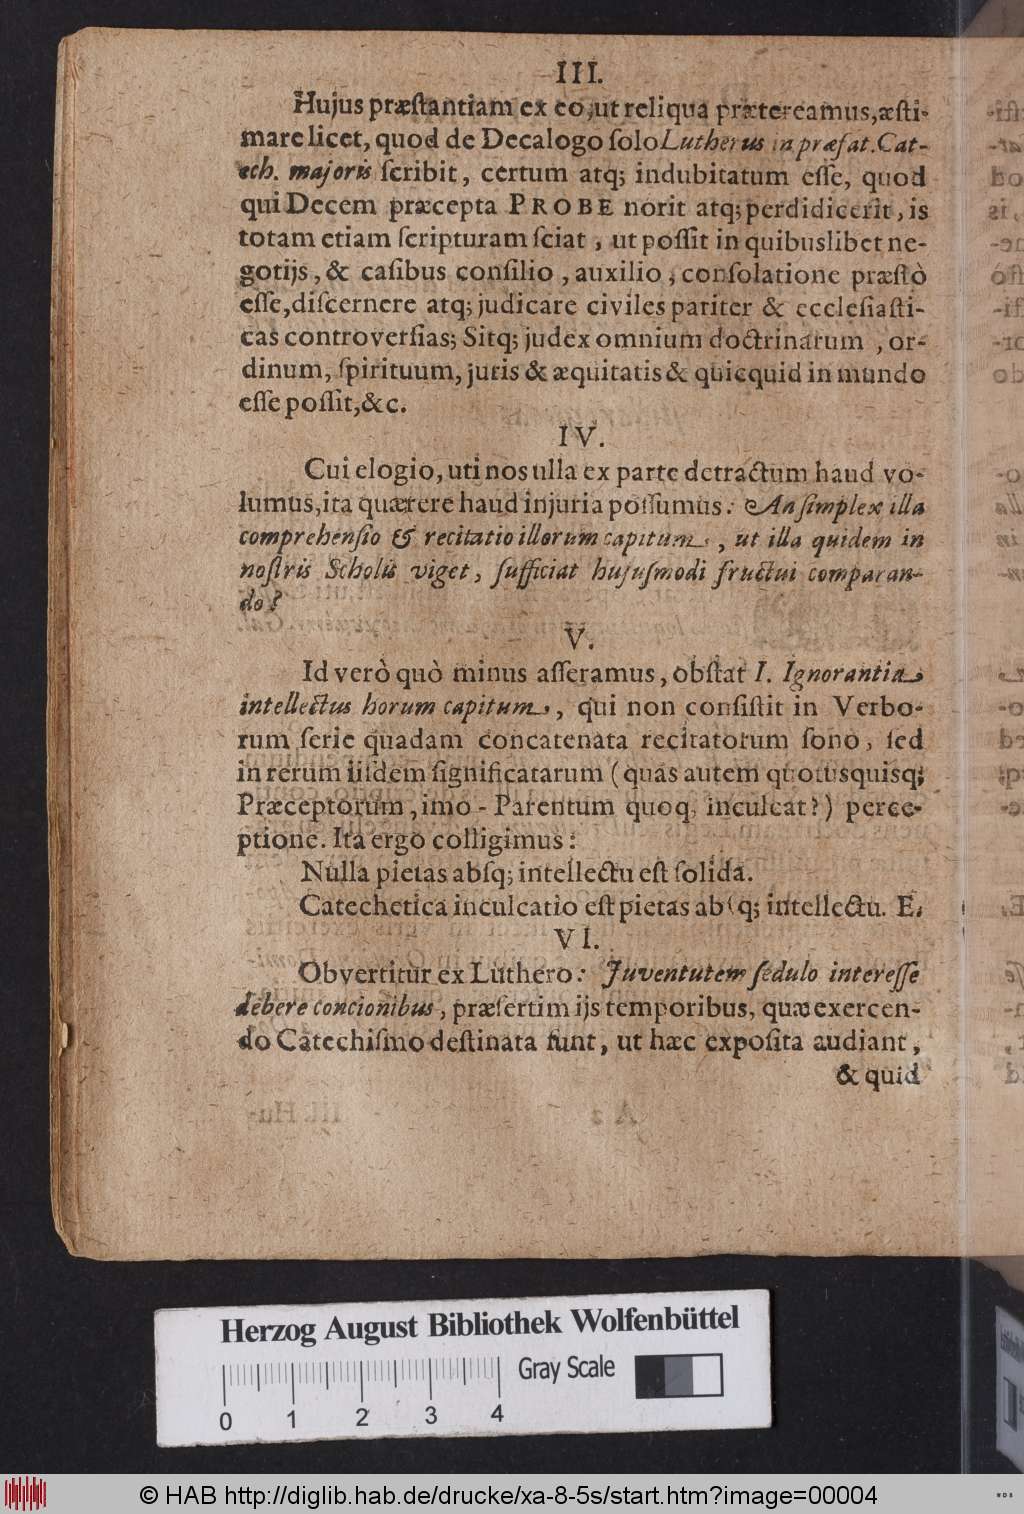 III.
Hujus præſtantiam ex eo, ut reliqua prætereamus, æſti-
mare licet, quod de Decalogo ſolo Lutherus in præfat. Cat-
ech. majoris ſcribit, certum atq; indubitatum eſſe, quod
qui Decem præcepta PROBE norit atq; perdidicerit, is
totam etiam ſcripturam ſciat, ut poſſit in quibuslibet ne-
gotijs, & caſibus conſilio, auxilio, conſolatione præſtò
eſſe, diſcernere atq; judicare civiles pariter & eccleſiaſti-
cas controverſias; Sitq; judex omnium doctrinarum, or-
dinum, ſpirituum, juris & æquitatis & quicquid in mundo
eſſe poſſit, &c.
IV.
Cui elogio, uti nos ulla ex parte detractum haud vo-
lumus, ita quærere haud injuria poſſumus: An ſimplex illa
comprehenſio & recitatio illorum capitum, ut illa quidem in
noſtris Scholis viget, ſufficiat hujuſmodi fructui comparan-
do?
V.
Id verò quò minus aſſeramus, obſtat I. Ignorantia
intellectus horum capitum, qui non conſiſtit in Verbo-
rum ſerie quadam concatenata recitatorum ſono, ſed
in rerum iiſdem ſignificatarum (quas autem quotusquisq;
Præceptorum, imo - Parentum quoq; inculcat?) perce-
ptione. Ita ergò colligimus:
Nulla pietas abſq; intellectu eſt ſolida.
Catechetica inculcatio eſt pietas abſq; intellectu. E.
VI.
Obvertitur ex Luthero: Juventutem ſedulo intereſſe
debere concionibus, præſertim ijs temporibus, quæ exercen-
do Catechiſmo deſtinata ſunt, ut hæc expoſita audiant,
& quid
Herzog August Bibliothek Wolfenbüttel
Gray Scale
0 1 2 3 4
© HAB http://diglib.hab.de/drucke/xa-8-5s/start.htm?image=00004